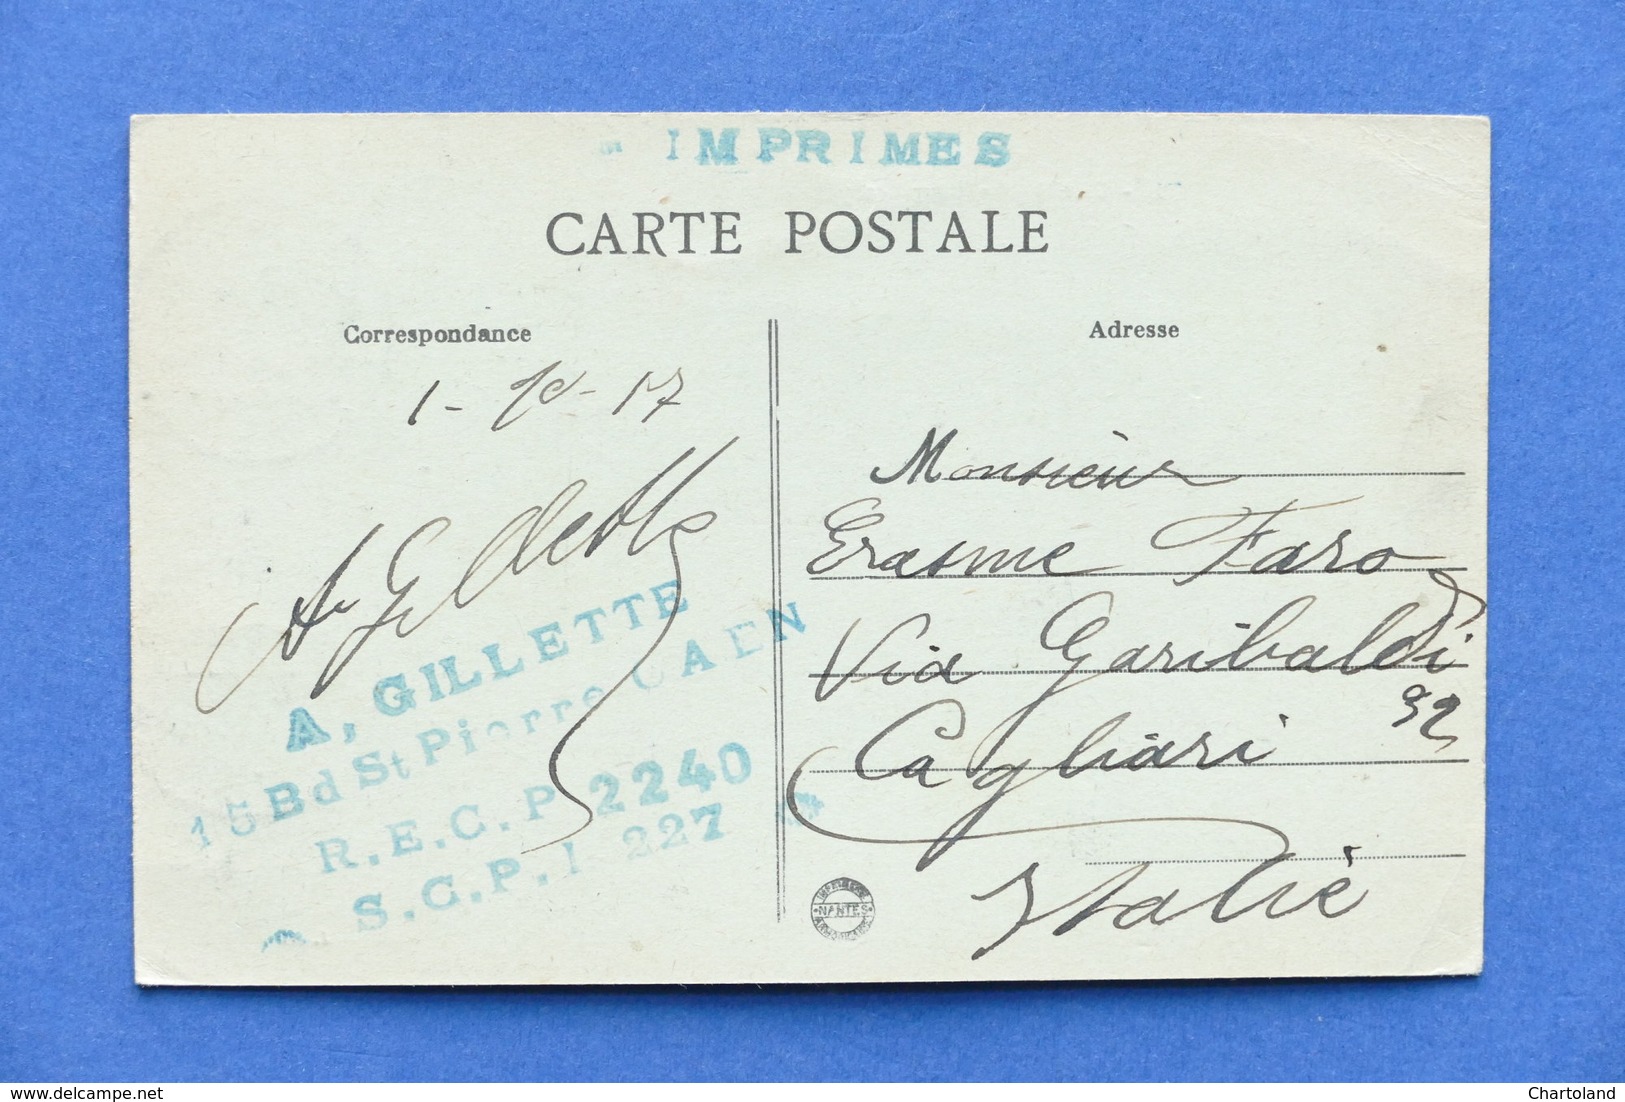 IMPRIMES
CARTE POSTALE
Correspondance
1-10-17
A Gillette
A. GILLETTE
15 Bd St Pierre CAEN
R.E.C.P 2240
S.C.P.I 227
Adresse
Monsieur
Erasme Faro
Via Garibaldi
92
Cagliari
Italie
NANTES
delcampe.net
Chartoland